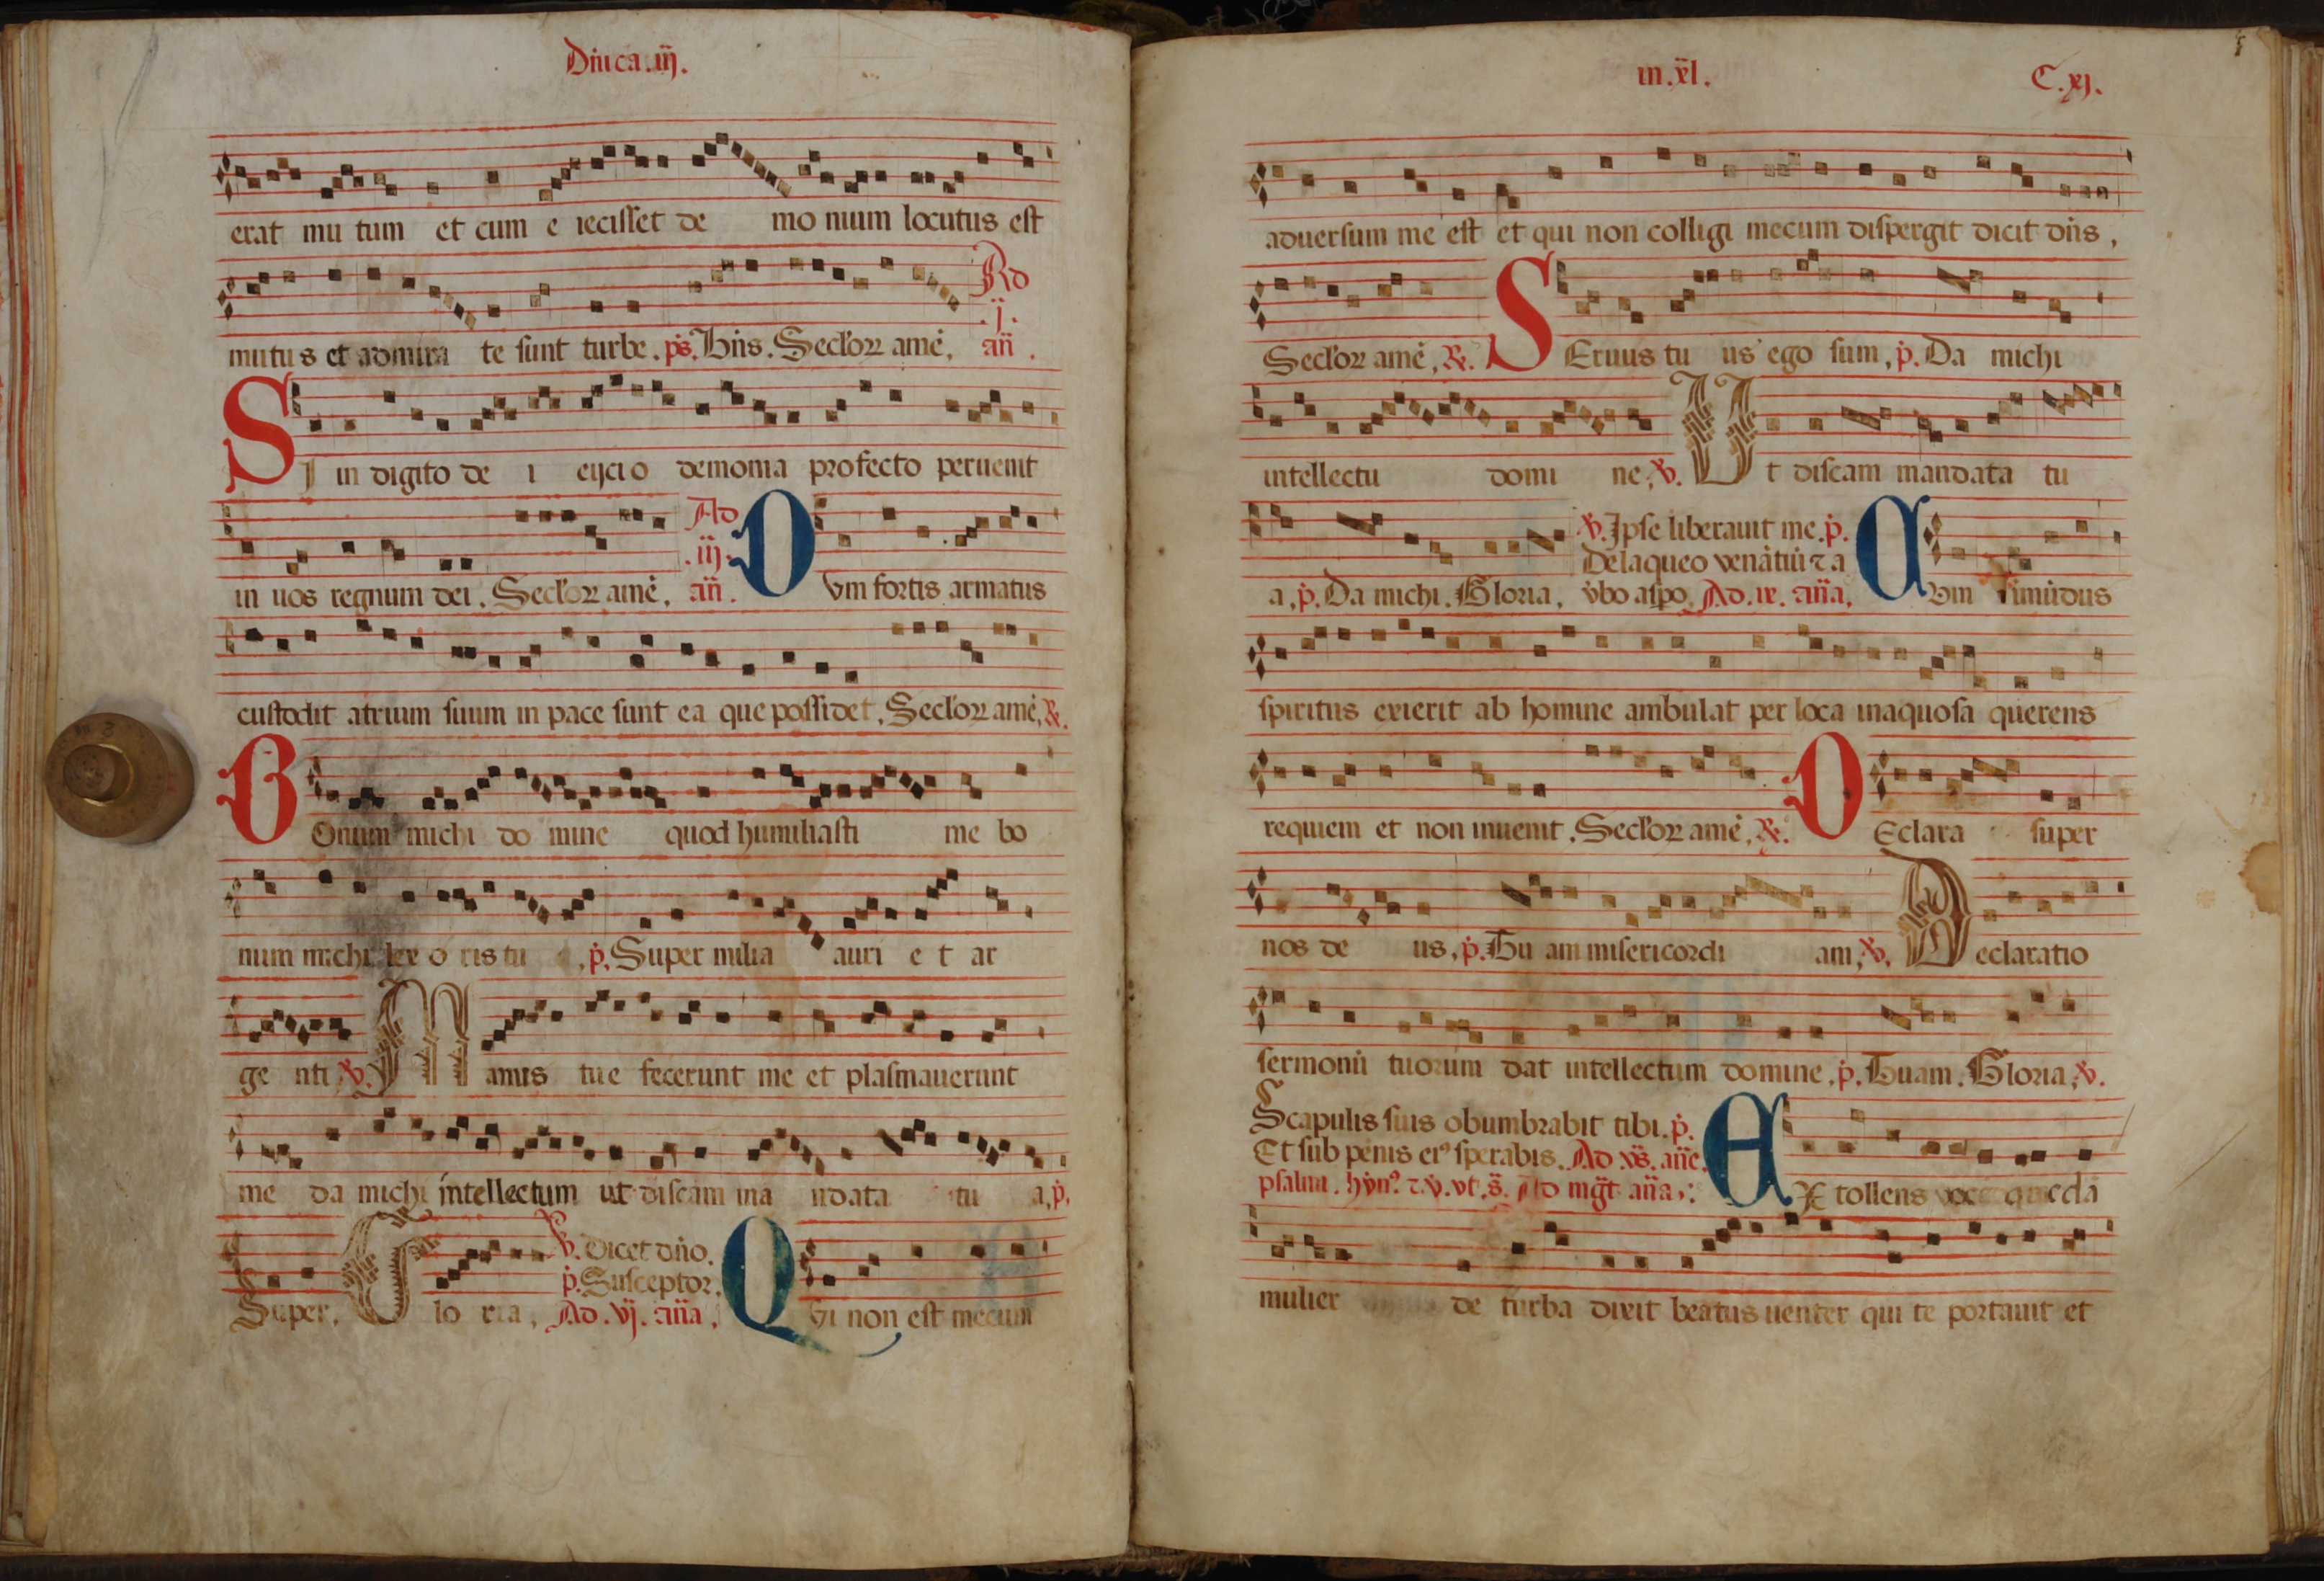 Dnica .iij.
erat mu tum et cum e iecisset de mo nium locutus est
mutus et admira te sunt turbe . ps. Bn̄s . Secl'oꝝ amē . Ad
.ij.
an̄ .
SI in digito de i eijcio demonia profecto peruenit
in uos regnum dei . Secl'oꝝ amē . Ad .iij. an̄ . DVm fortis armatus
custodit atrium suum in pace sunt ea que possidet . Secl'oꝝ amē . ℟.
BOnum michi do mine quod humiliasti me bo
num michi lex o ris tu . p̄. Super milia auri e t ar
ge nti ℣. Manus tue fecerunt me et plasmauerunt
me da michi intellectum ut discam ma ndata tu a . p̄.
Super . Glo ria . ℣. Dicet dn̄o .
p̄. Susceptor .
Ad .vj. an̄a . QVi non est mecum
in .xl. C.xj.
aduersum me est et qui non colligi mecum dispergit dicit dn̄s .
Secl'oꝝ amē . ℟. SEruus tu us ego sum . p̄. Da michi
intellectu domi ne . ℣. Ut discam mandata tu
℣. Ipse liberauit me . p̄.
De laqueo venātiū ⁊ a
a . p̄. Da michi . Gloria . v̄bo asp̄o . Ad .ix. an̄a . CVm īmūdus
spiritus exierit ab homine ambulat per loca inaquosa querens
requiem et non inuenit . Secl'oꝝ amē . ℟. DEclara super
nos de us . p̄. Tu am misericordi am . ℣. Declaratio
sermonū tuorum dat intellectum domine . p̄. Tuam . Gloria . ℣.
Scapulis suis obumbrabit tibi . p̄.
Et sub penis eiꝰ sperabis . Ad vs̄. an̄e .
psalmi . hȳnꝰ ⁊ .v̄. vt . s̄. Ad mḡt an̄a . EXtollens uoce quedā
mulier de turba dixit beatus uenter qui te portauit et